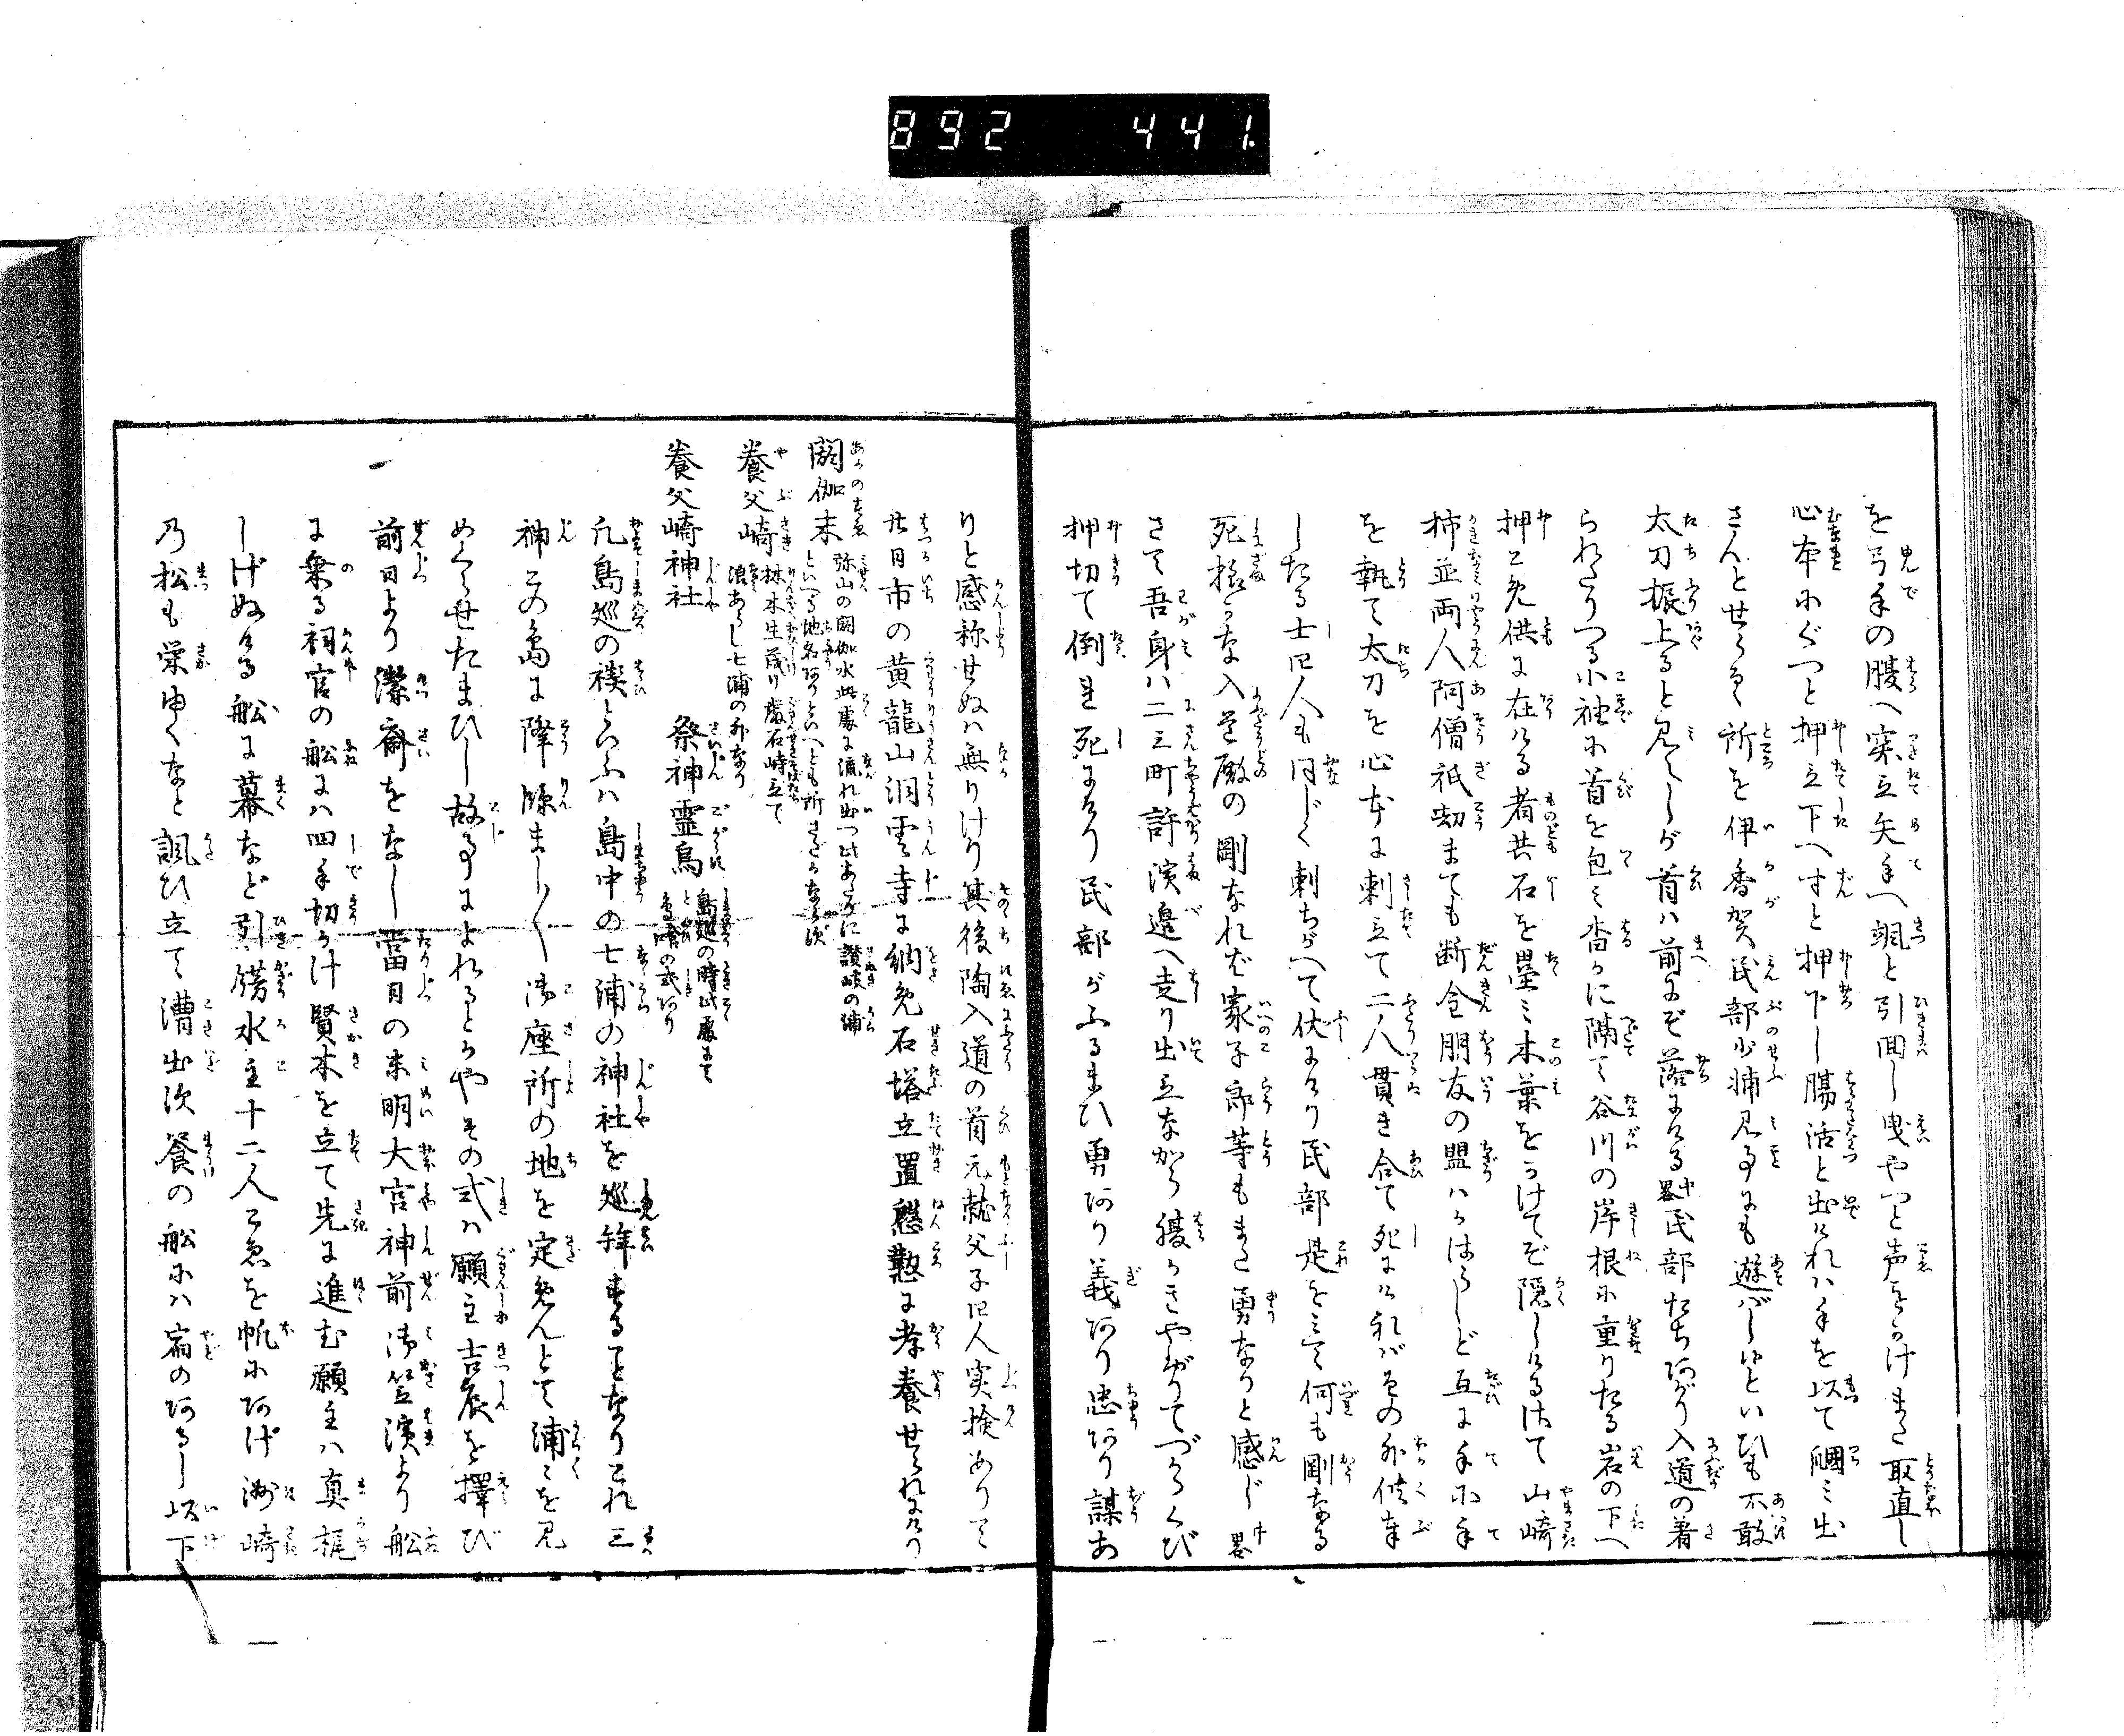 892 441.
を弓手の腹へ突立矢手へ颯と引回し曳やつと声をかけまた取直し
心本にぐつと押立下へすと押下し腸活と出ければ手を以て掴み出
さんとせらるゝ所を伊香賀民部少輔見事にも遊ばし候といひも不敢
太刀振上ると見へしが首は前にぞ落にける中畧民部たちあがり入道の着
られたりつる小袖に首を包み杳かに隔て谷川の岸根に重りたる岩の下へ
押こめ供に在ける者共石を塁み木葉をかけてぞ隠しけるさて山崎
柿並両人阿僧祇劫までも断金朋友の盟はかはらしと互に手に手
を執て太刀を心本に刺立て二人貫き合て死にければその外伎奉
したる士四人も同じく刺ちがへて伏にけり民部是を見て何も剛なる
死様かな入道殿の剛なれば家子郎等もまた勇なりと感じ中畧
さて吾身は二三町許演邊へ走り出立ながら腹かきやぶりてづからくび
押切て倒れ死にけり民部がふるまひ勇あり義あり忠あり謀あ
りと感称せぬは無りけり其後陶入道の首元就父子四人実検ありて
廿日市の黄龍山洞雲寺に納め石塔立置懇懃に孝養せられにけり
閼伽末 弥山の閼伽水此處に流れ出つ此あたりに讃岐の浦
といへる地名ありといへとも所さだかならず
養父崎 林木生茂り巖石峙立て
浪あらし七浦の外なり
養父崎神社 祭神霊烏 島廻の時此處にて
烏喰の式あり
凡島巡の禊といふは島中の七浦の神社を巡拜することなりこれ三
神この島に降臨まし〳〵御座所の地を定めんとて浦々を見
めくらせたまひし故事によれるとかやその式は願主吉辰を擇び
前日より潔齋をなし當日の未明大宮神前御笠濱より船
に乗る祠官の船には四手切かけ賢木を立て先に進む願主は真梶
しげぬける船に幕など引餝水主十二人こゑを帆にあげ洲崎
乃松も栄ゆくなと諷ひ立て漕出次餐の船には宿のあるし以下